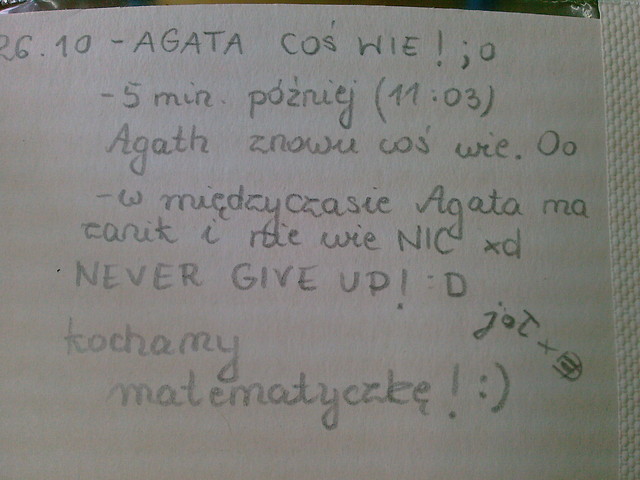 26.10 - AGATA COŚ WIE! ;o
- 5 min. później (11:03)
Agath znowu coś wie. Oo
- w międzyczasie Agata ma
zanik i nie wie NIC xd
NEVER GIVE UP! :D
kochamy
matematyczkę! :)